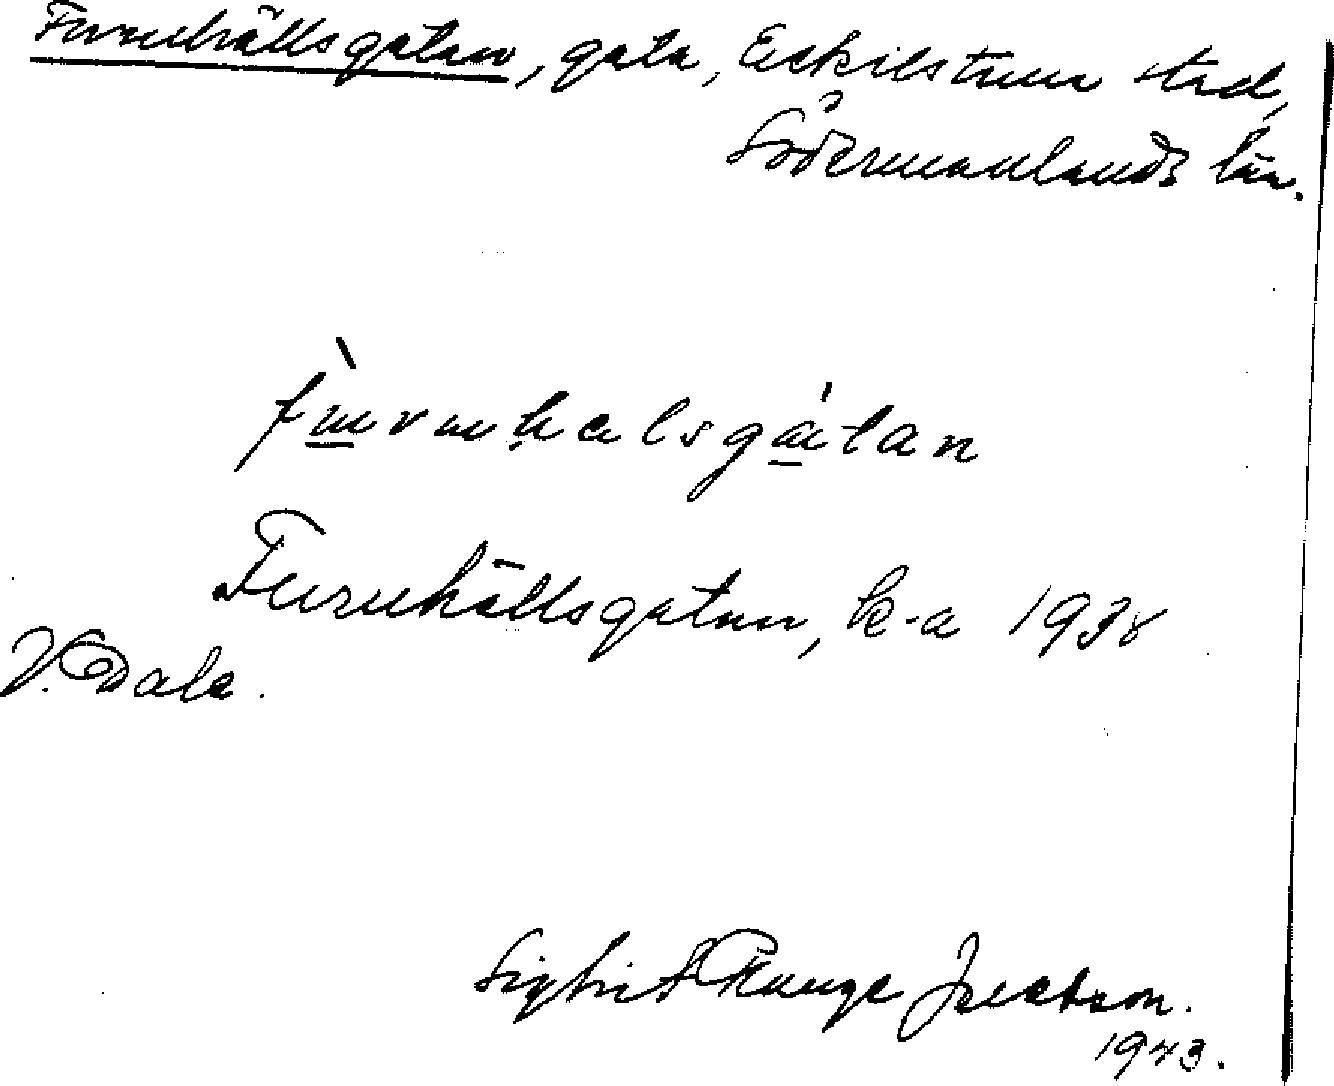 Furuhällsgatan, gata, Eskilstuna stad,
Södermanlands län.
furuhalsgatan
Furuhällsgatan, k-a 1938
V. Dala.
Sigfrid Jacobson.
1943.